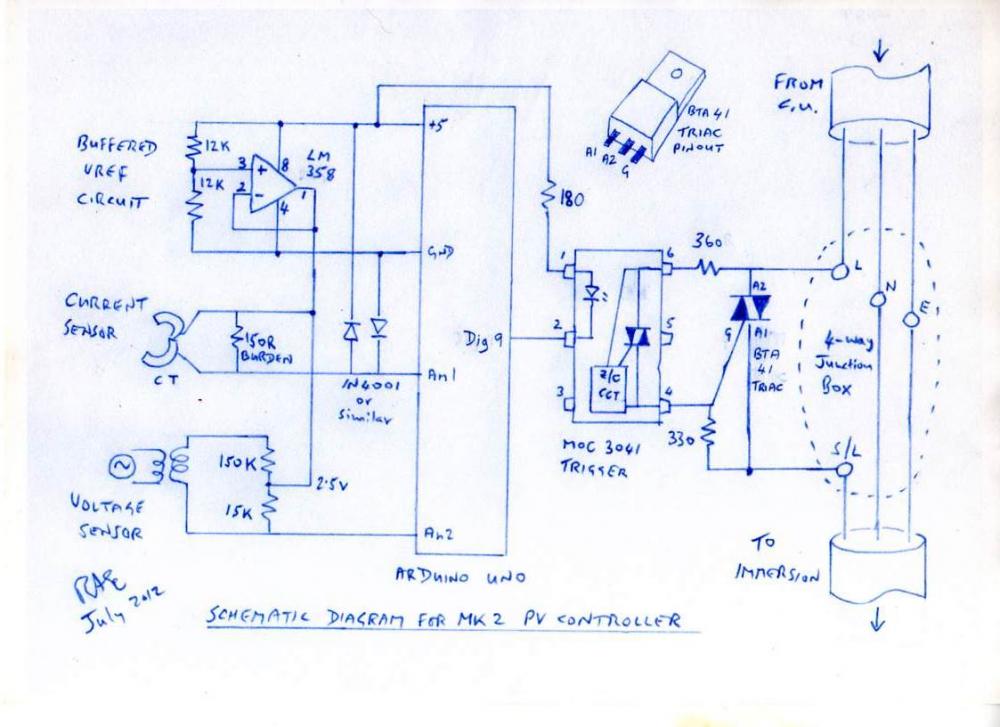 BUFFERED
VREF
CIRCUIT
12K
12K
3
2
+
-
8
4
1
LM
358
+5
GND
Dig 9
An1
An2
ARDUINO UNO
CURRENT
SENSOR
CT
150R
BURDEN
1N4001
or
Similar
VOLTAGE
SENSOR
150K
15K
2.5V
180
1
2
3
6
5
4
Z/C
CCT
MOC 3041
TRIGGER
360R
330
A2
G
A1
BTA
41
TRIAC
BTA 41
TRIAC
PINOUT
A1
A2
G
FROM
C.U.
L
N
E
4-way
Junction
Box
S/L
TO
IMMERSION
July 2012
SCHEMATIC DIAGRAM FOR MK2 PV CONTROLLER